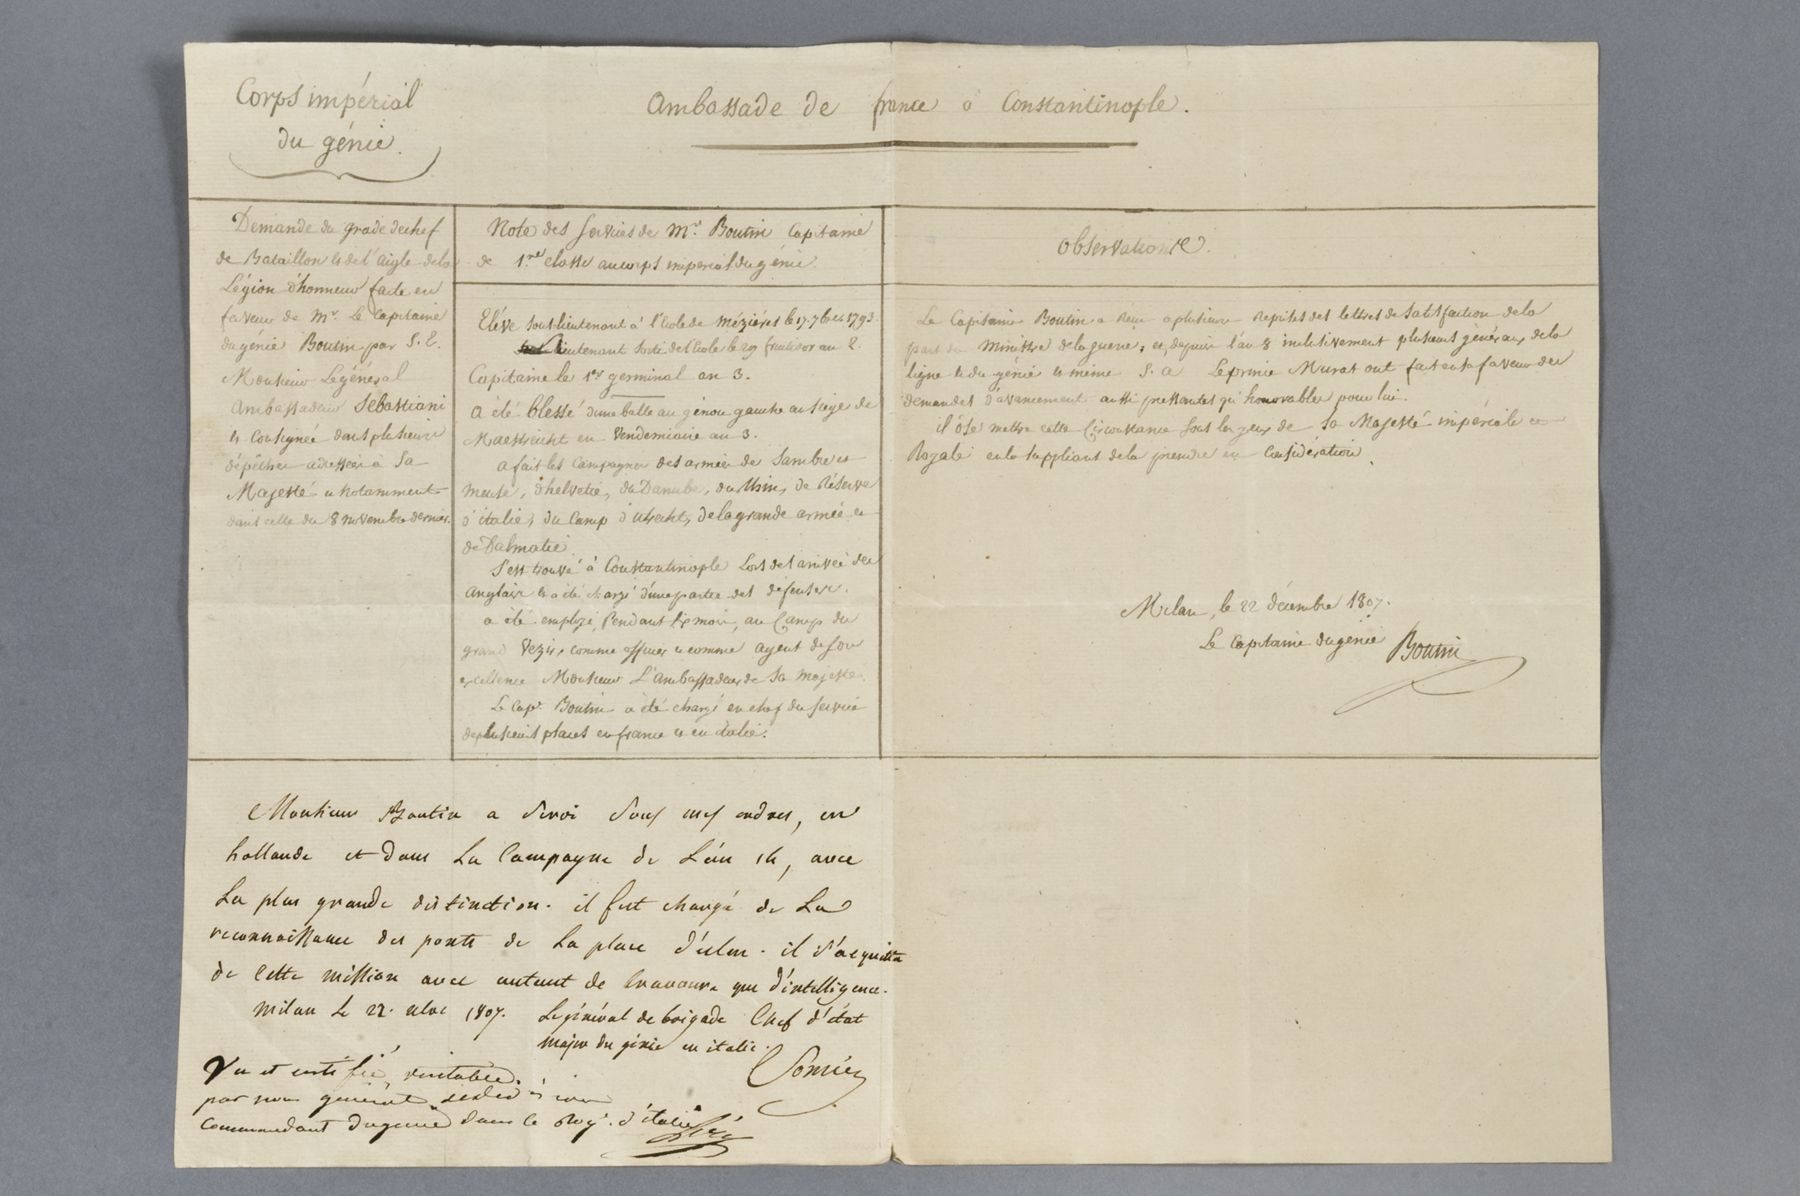 Corps impérial
du génie.
Ambassade de france à Constantinople.
Demande du grade de chef
de Bataillon & de l'aigle de la
Légion d'honneur faite en
faveur de Mr. Le Capitaine
du génie Boutin par S. E.
Monsieur Le général
Ambassadeur Sébastiani
& Consignée dans plusieurs
dépêches adressées à Sa
Majesté & notamment
dans celle du 8 novembre dernier.
Note des services de Mr. Boutin Capitaine
de 1.re classe au corps impérial du génie.
Elève sous-lieutenant à l'Ecole de Mézières le 17. 7bre 1793.
lieutenant sorti de l'Ecole le 29 fructidor an 2.
Capitaine le 1er germinal an 3.
A été blessé d'une balle au génou gauche au siège de
Maestricht en Vendemiaire an 3.
a fait les Campagnes des armées de Sambre et
Meuse, d'helvetie, du Danube, du Rhin, de Réserve
d'italie, du Camp d'utrecht, de la grande armée &
de Dalmatie
S'est trouvé à Constantinople Lors de l'arrivée des
anglais & a été chargé d'une partie des défenses.
a été employé, Pendant six mois, au Camp du
grand Vezir, comme officier & comme agent de Son
excellence Monsieur L'ambassadeur de Sa Majesté.
Le Cape. Boutin a été chargé en chef du service
de plusieurs places en france & en italie.
Observations
Le Capitaine Boutin a reçu à plusieurs reprises des lettres de Satisfaction de la
part du Ministre de la guerre, et, depuis l'an 8 inclusivement plusieurs généraux de la
ligne & du génie & même S. A Le prince Murat ont fait en sa faveur des
demandes d'avancement aussi pressantes qu'honorables pour lui.
il ôse mettre cette Circonstance sous les yeux de Sa Majesté impériale &
Royale en la suppliant de la prendre en Considération.
Milan, le 22 décembre 1807.
Le Capitaine du génie Boutin
Monsieur Boutin a servi sous mes ordres, en
hollande et dans La Campagne de L'an 14, avec
La plus grande distinction. il fut chargé de La
reconnaissance des ponts de La place d'ulm. il s'acquitta
de cette mission avec autant de bravoure que d'intelligence.
Milan Le 22. xbre 1807. Le général de brigade Chef d'état
major du génie en italie.
Vu et certifié véritable.
par nous général
Commandant du génie dans le Roy. d'italie